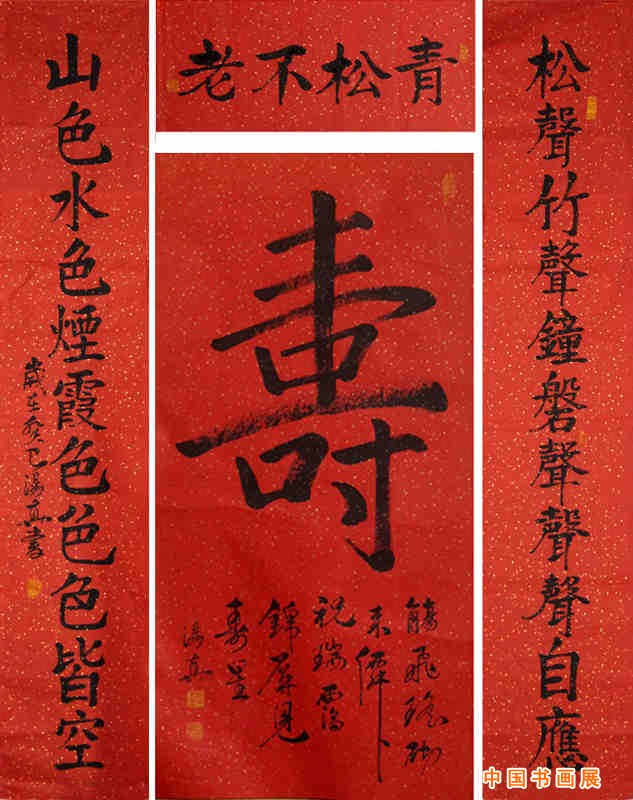 青松不老
松聲竹聲鐘磐聲聲聲自應
山色水色煙霞色色色皆空
歲在癸巳 書
壽
飛瑤
祝瑞
錦屏見
壽星
中国书画展